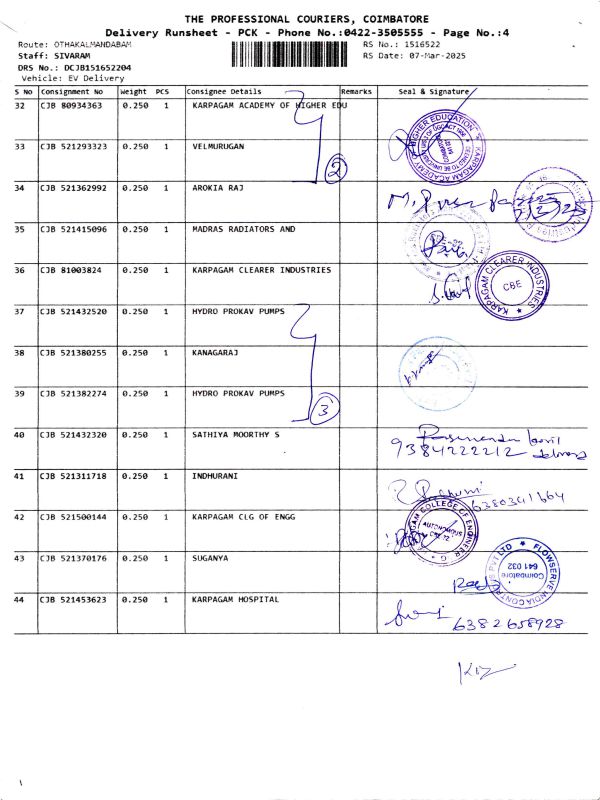 THE PROFESSIONAL COURIERS, COIMBATORE
Delivery Runsheet - PCK - Phone No.:0422-3505555 - Page No.:4
Route: OTHAKALMANDABAM RS No.: 1516522
Staff: SIVARAM RS Date: 07-Mar-2025
DRS No.: DCJB151652204
Vehicle: EV Delivery
S No Consignment No Weight PCS Consignee Details Remarks Seal & Signature
32 CJB 80934363 0.250 1 KARPAGAM ACADEMY OF HIGHER EDU
33 CJB 521293323 0.250 1 VELMURUGAN
2
34 CJB 521362992 0.250 1 AROKIA RAJ
35 CJB 521415096 0.250 1 MADRAS RADIATORS AND
36 CJB 81003824 0.250 1 KARPAGAM CLEARER INDUSTRIES
KARPAGAM CLEARER INDUSTRIES
CBE
37 CJB 521432520 0.250 1 HYDRO PROKAV PUMPS
38 CJB 521380255 0.250 1 KANAGARAJ
39 CJB 521382274 0.250 1 HYDRO PROKAV PUMPS
3
40 CJB 521432320 0.250 1 SATHIYA MOORTHY S
9384222212
41 CJB 521311718 0.250 1 INDHURANI
6380341664
42 CJB 521500144 0.250 1 KARPAGAM CLG OF ENGG
AUTONOMOUS
43 CJB 521370176 0.250 1 SUGANYA
FLOWSERVE INDIA CONTROLS PVT LTD
Coimbatore
641 032
44 CJB 521453623 0.250 1 KARPAGAM HOSPITAL
6382658928